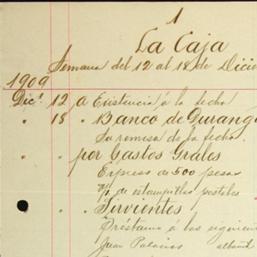 1
La Caja
Semana del 12 al 18 de Dicie
1909
Dic. 12 a Existencia á la fecha
" 18 " Banco de Durango
Su remesa de fecha
" " por Gastos Grales
Expreso de 500 pesos
de estampillas postales
" " Sirvientes
Préstamo á los siguien
Juan Palacios